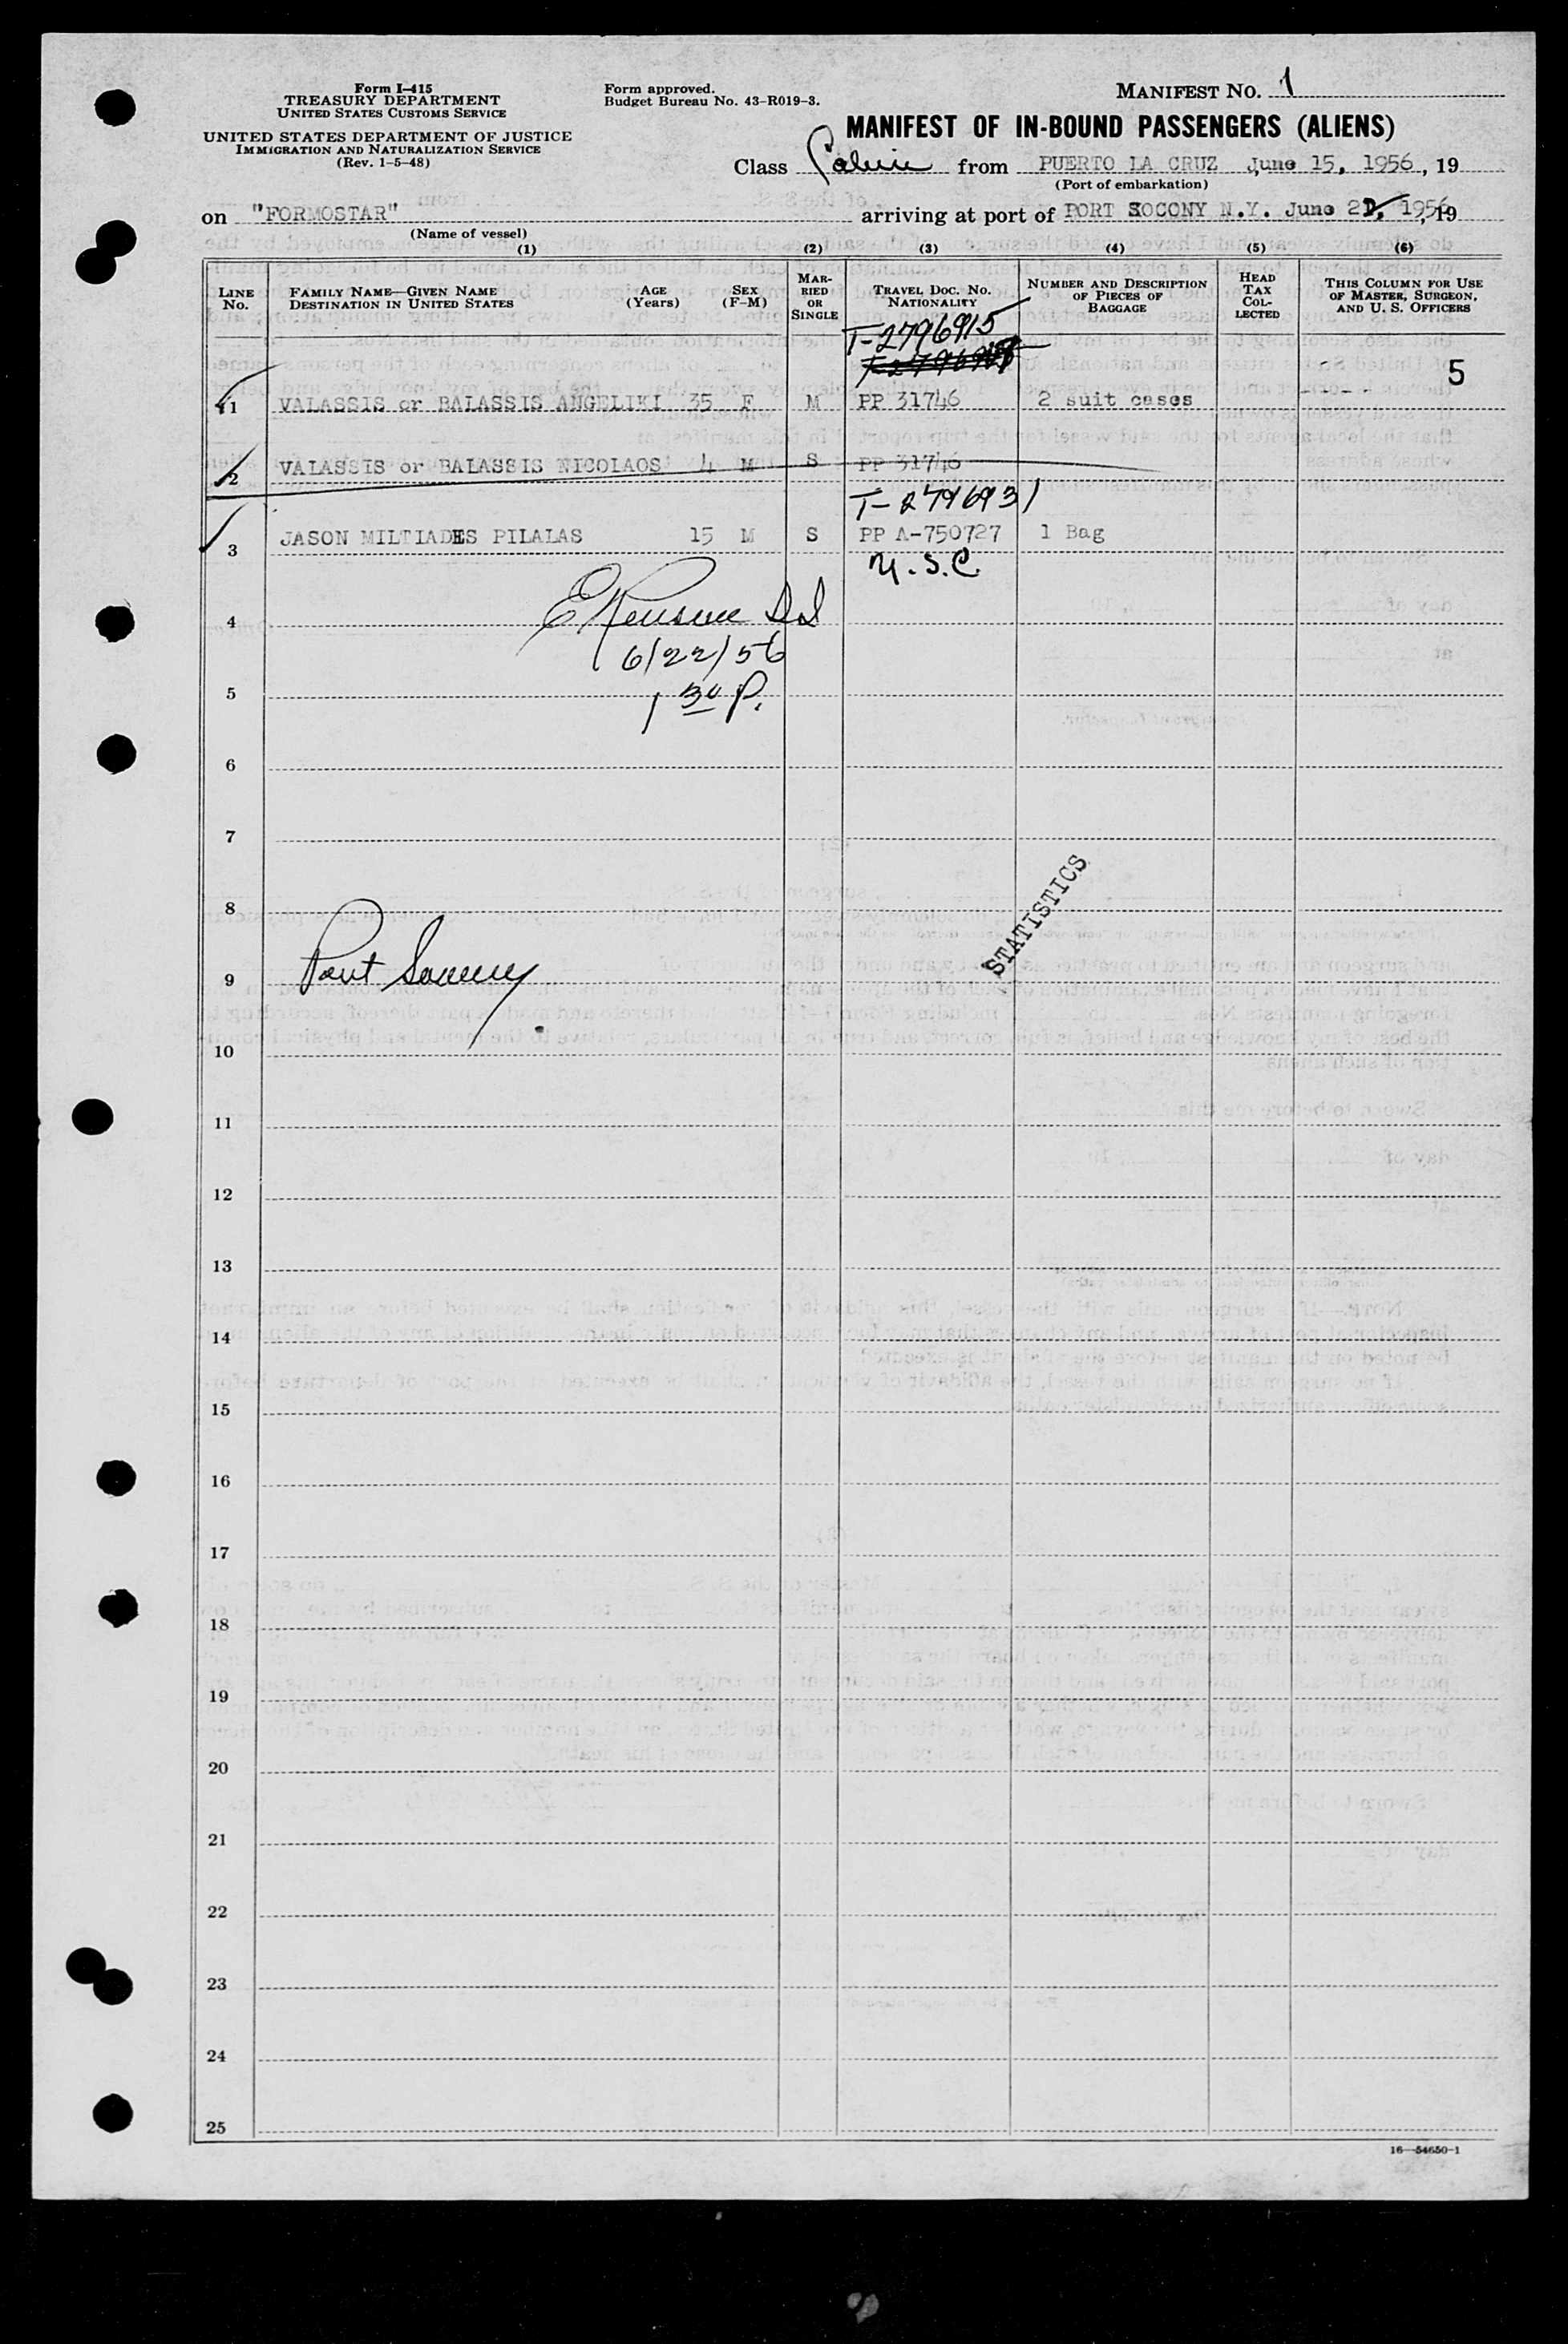 Form I-415
TREASURY DEPARTMENT
UNITED STATES CUSTOMS SERVICE
UNITED STATES DEPARTMENT OF JUSTICE
IMMIGRATION AND NATURALIZATION SERVICE
(Rev. 1-5-48)
Form approved.
Budget Bureau No. 43-R019-3.
MANIFEST NO. 1
MANIFEST OF IN-BOUND PASSENGERS (ALIENS)
Class Cabin from PUERTO LA CRUZ June 15, 1956, 19
(Port of embarkation)
on "FORMOSTAR" arriving at port of PORT SOCONY N.Y. June 2 , 1956, 19
(Name of vessel)
(1) (2) (3) (4) (5) (6)
LINE NO.
FAMILY NAME—GIVEN NAME
DESTINATION IN UNITED STATES
AGE (Years)
SEX (F-M)
MARRIED OR SINGLE
TRAVEL DOC. NO.
NATIONALITY
NUMBER AND DESCRIPTION OF PIECES OF BAGGAGE
HEAD TAX COLLECTED
THIS COLUMN FOR USE OF MASTER, SURGEON, AND U. S. OFFICERS
T-2796915
5
1 VALASSIS or BALASSIS ANGELIKI 35 F M PP 31746 2 suit cases
2 VALASSIS or BALASSIS NICOLAOS 4 M S PP 31746
T-2796931
3 JASON MILTIADES PILALAS 15 M S PP A-750727 1 Bag
U.S.C.
4
6/22/56
5
1 30 P.
6
7
8
STATISTICS
9 Port Socony
10
11
12
13
14
15
16
17
18
19
20
21
22
23
24
25
16—54650-1